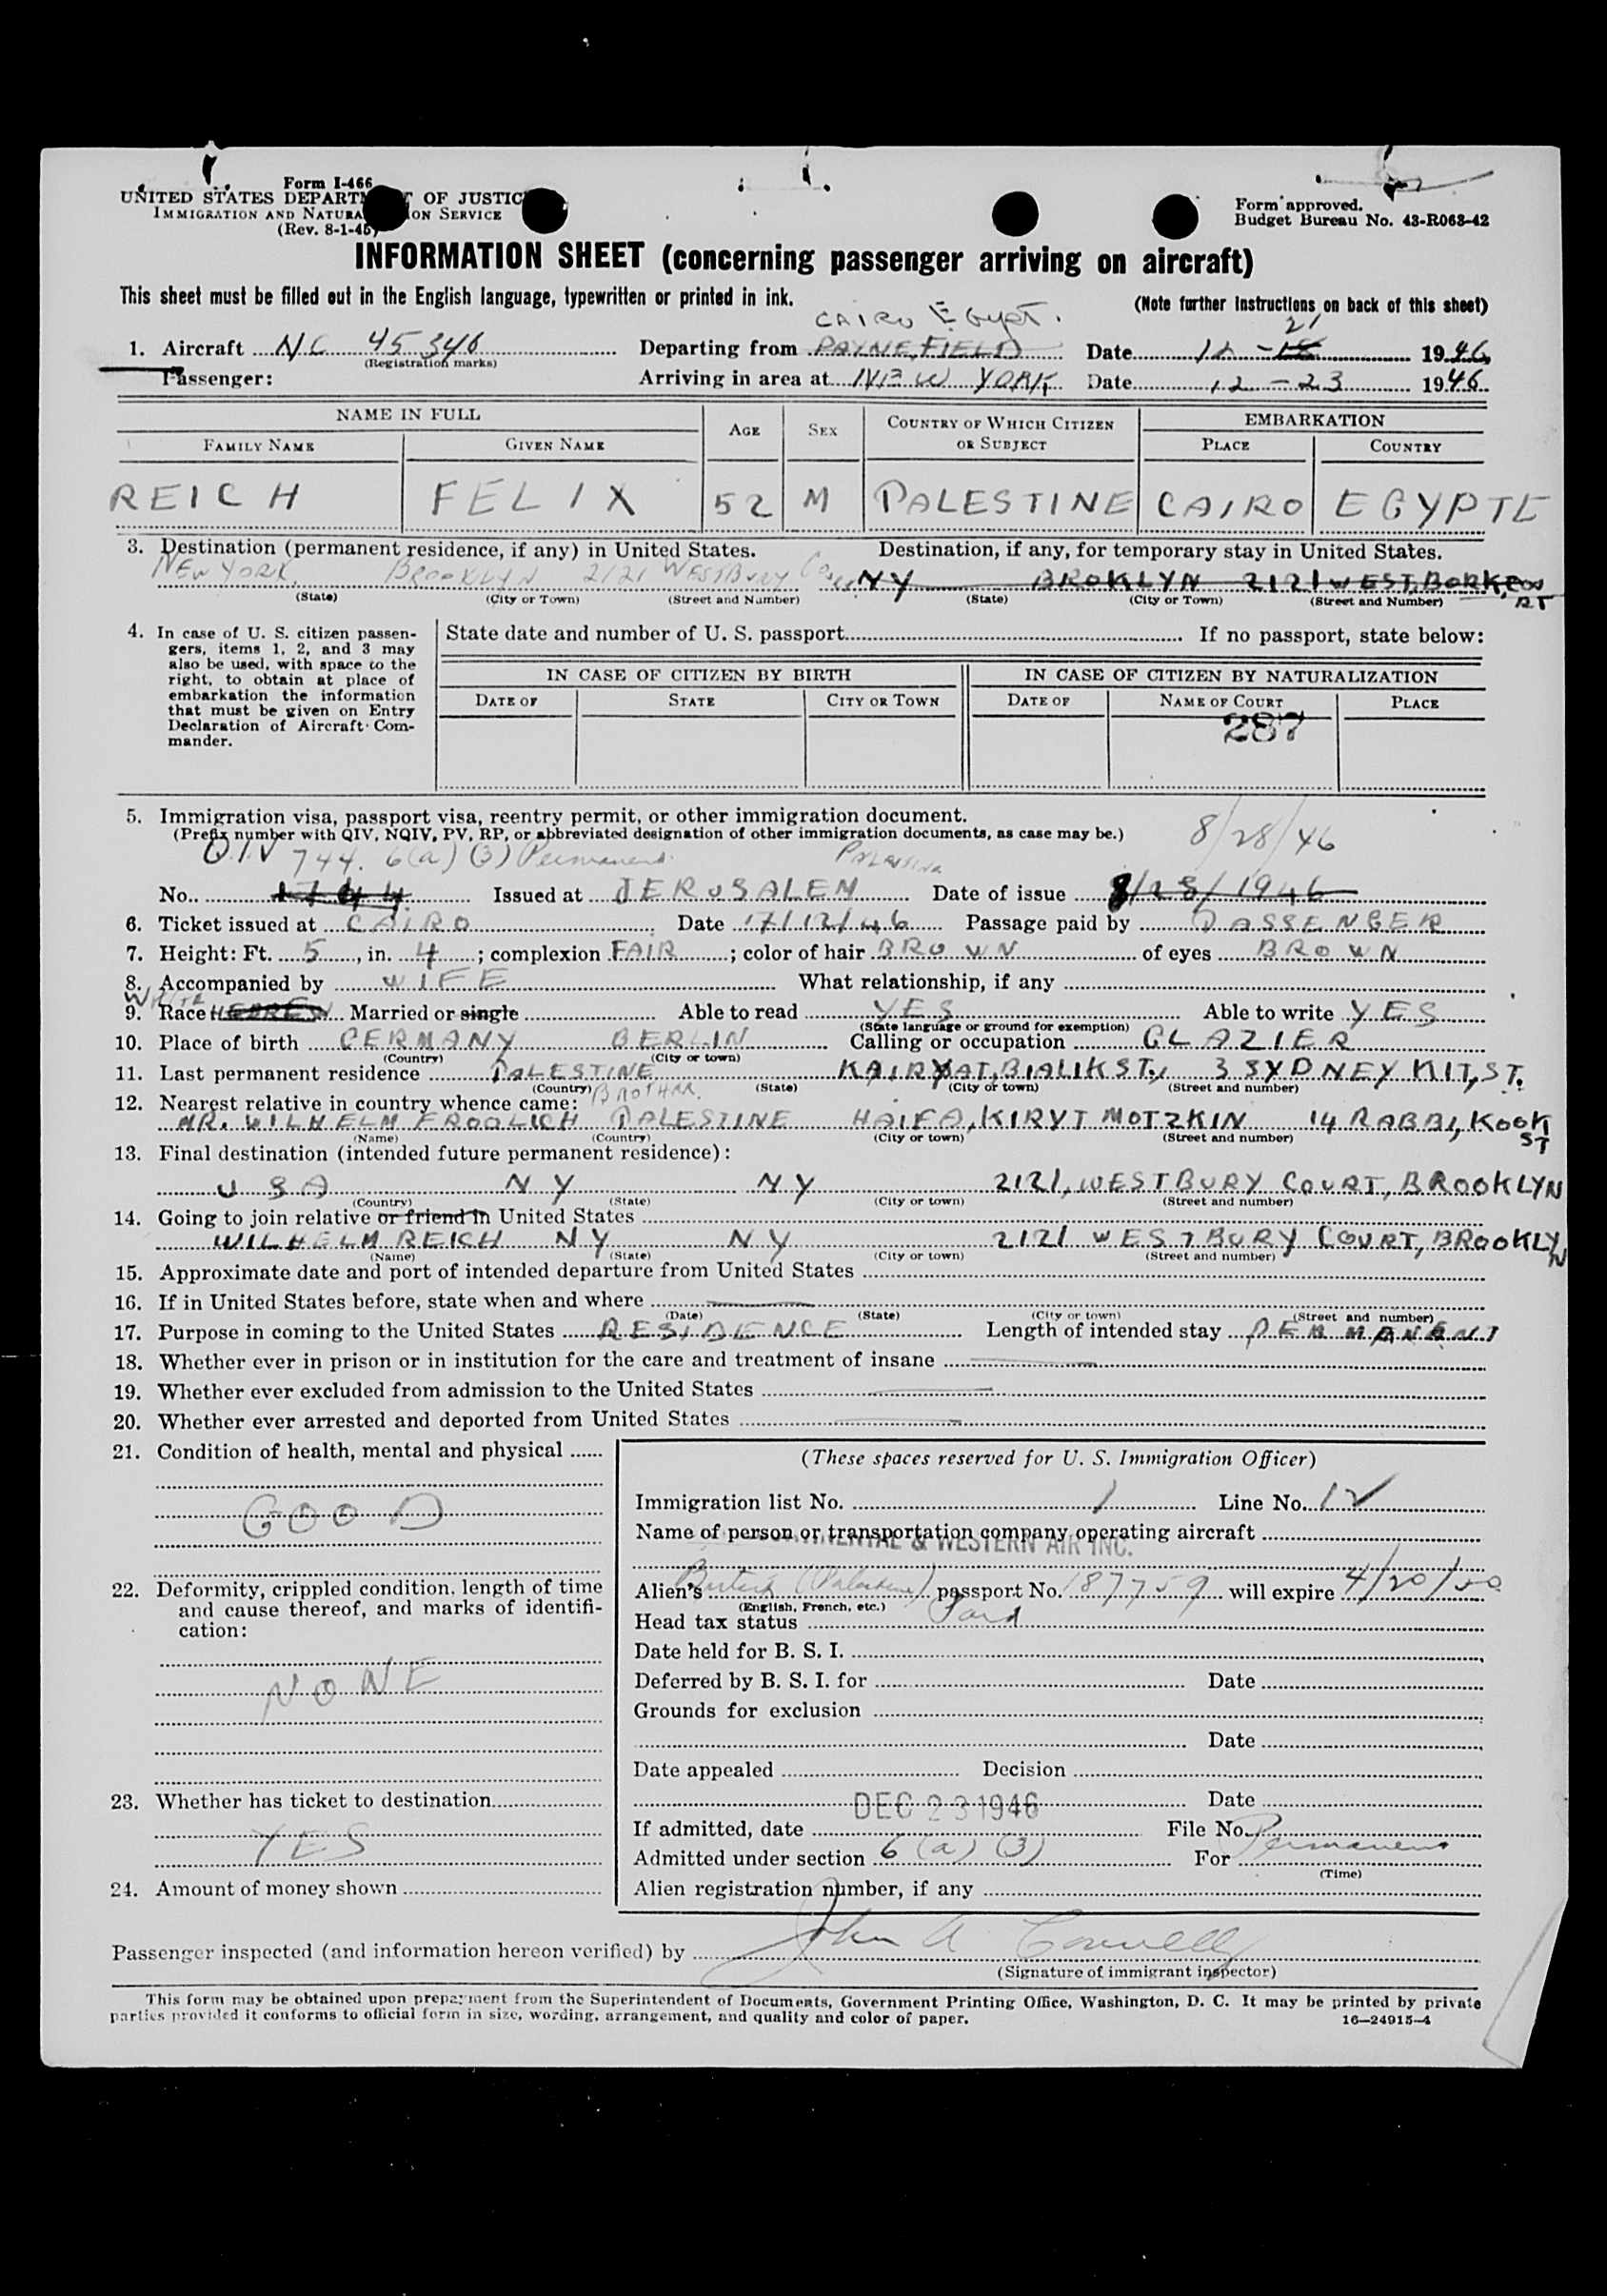 Form I-466
UNITED STATES DEPARTMENT OF JUSTICE
IMMIGRATION AND NATURALIZATION SERVICE
(Rev. 8-1-45)
Form approved.
Budget Bureau No. 43-R063-42
INFORMATION SHEET (concerning passenger arriving on aircraft)
This sheet must be filled out in the English language, typewritten or printed in ink.
(Note further instructions on back of this sheet)
CAIRO EGypt.
21
1. Aircraft NC 45346 Departing from PAYNE FIELD Date 12 - 18 1946
(Registration marks)
Passenger: Arriving in area at NEW YORK Date 12 - 23 1946
NAME IN FULL AGE SEX COUNTRY OF WHICH CITIZEN OR SUBJECT EMBARKATION
FAMILY NAME GIVEN NAME PLACE COUNTRY
REICH FELIX 52 M PALESTINE CAIRO EGYPTE
3. Destination (permanent residence, if any) in United States. Destination, if any, for temporary stay in United States.
NEW YORK, BROOKLYN 2121 WESTBURY Court NY BROKLYN 2121 WEST,BORK,COU
RT
(State) (City or Town) (Street and Number) (State) (City or Town) (Street and Number)
4. In case of U. S. citizen passen-
gers, items 1, 2, and 3 may
also be used, with space to the
right, to obtain at place of
embarkation the information
that must be given on Entry
Declaration of Aircraft Com-
mander.
State date and number of U. S. passport If no passport, state below:
IN CASE OF CITIZEN BY BIRTH IN CASE OF CITIZEN BY NATURALIZATION
DATE OF STATE CITY OR TOWN DATE OF NAME OF COURT PLACE
287
5. Immigration visa, passport visa, reentry permit, or other immigration document.
(Prefix number with QIV, NQIV, PV, RP, or abbreviated designation of other immigration documents, as case may be.)
QIV 744. 6(a)(3) Permanent. PALESTINE 8/28/46
No. 1744 Issued at JERUSALEM Date of issue 8/28/1946
6. Ticket issued at CAIRO Date 17/12/46 Passage paid by PASSENGER
7. Height: Ft. 5, in. 4; complexion FAIR; color of hair BROWN of eyes BROWN
8. Accompanied by WIFE What relationship, if any
WHITE
9. Race HEBREW Married or single Able to read YES Able to write YES
(State language or ground for exemption)
10. Place of birth GERMANY BERLIN Calling or occupation GLAZIER
(Country) (City or town)
11. Last permanent residence PALESTINE KAIRYAT,BIALIK ST., 3 SYDNEY KIT,ST.
(Country) (State) (City or town) (Street and number)
12. Nearest relative in country whence came: BROTHAR.
MR. WILHELM FROOLICH PALESTINE HAIFA,KIRYT MOTZKIN 14 RABBI,KOOK
ST
(Name) (Country) (City or town) (Street and number)
13. Final destination (intended future permanent residence):
USA NY NY 2121, WESTBURY COURT, BROOKLYN
(Country) (State) (City or town) (Street and number)
14. Going to join relative or friend in United States
WILHELM REICH NY NY 2121 WESTBURY COURT, BROOKLY
N
(Name) (State) (City or town) (Street and number)
15. Approximate date and port of intended departure from United States
16. If in United States before, state when and where
(Date) (State) (City or town) (Street and number)
17. Purpose in coming to the United States RESIDENCE Length of intended stay PERMANENT
18. Whether ever in prison or in institution for the care and treatment of insane
19. Whether ever excluded from admission to the United States
20. Whether ever arrested and deported from United States
21. Condition of health, mental and physical
GOOD
22. Deformity, crippled condition, length of time
and cause thereof, and marks of identifi-
cation:
NONE
23. Whether has ticket to destination
YES
24. Amount of money shown
(These spaces reserved for U. S. Immigration Officer)
Immigration list No. 1 Line No. 12
Name of person or transportation company operating aircraft
CONTINENTAL & WESTERN AIR INC.
Alien's British (Palestine) passport No. 187759 will expire 4/20/50
(English, French, etc.)
Head tax status Paid
Date held for B. S. I.
Deferred by B. S. I. for Date
Grounds for exclusion
Date
Date appealed Decision
DEC 23 1946 Date
If admitted, date File No.
Admitted under section 6 (a) (3) For Permanent
(Time)
Alien registration number, if any
Passenger inspected (and information hereon verified) by John A Connelly
(Signature of immigrant inspector)
This form may be obtained upon prepayment from the Superintendent of Documents, Government Printing Office, Washington, D. C. It may be printed by private
parties provided it conforms to official form in size, wording, arrangement, and quality and color of paper.
16—24915-4